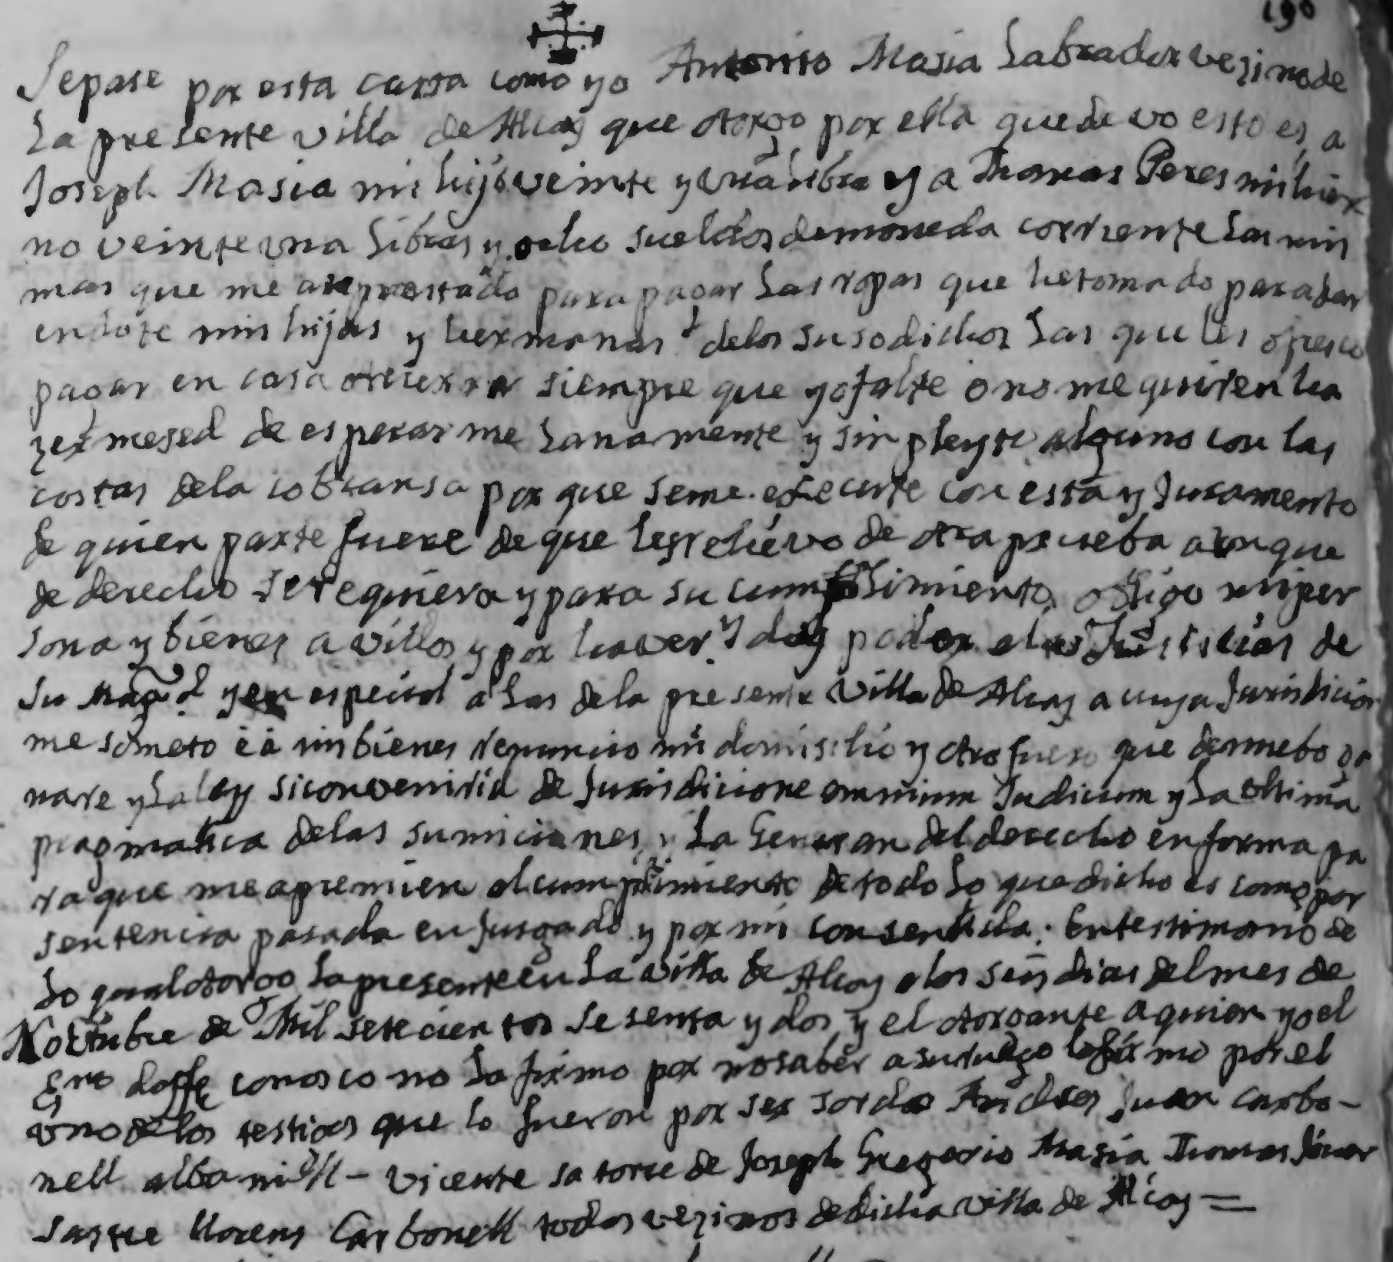 190
Sepase por esta carta como yo Antonio Masia Labrador vezino de
La presente villa de Alcoy que otorgo por ella que devo esto es a
Joseph Masia mi hijo veinte y una libra y a Thomas Peres mi hier
no veinte una libras y ocho sueldos de moneda corriente Las mis
mas que me an prestado para pagar Las ropas que he tomado para dar
en dote mis hijas y hermanas de los susodichos Las que les ofresco
pagar en casa siempre que yo falte o no me quiren ha
zer mesed de esperarme Lanamente y sin pleyto alguno con las
costas dela cobransa por que seme execute con esta y Juramento
de quien parte fuere de que les relievo de otra prueba aunque
de derecho se requiera y para su cumplimiento obligo mi per
sona y bienes avidos y por haver y doy poder a las Justicias de
Su Magd. y en especial a Las dela presente Villa de Alcoy a cuya Jurisdicion
me someto é á mis bienes renuncio mi domisilio y otro fuero que de nuebo ga
nare y La ley siconvenirid de Jurisdicione omnium Judicum y La ultima
pragmatica delas sumiciones y La General del derecho en forma pa
ra que me apremien al cumplimiento de todo Lo que dicho es como por
sentencia pasada en Jusgado y por mi consentida. En testimonio de
Lo qual otorgo La presente en La villa de Alcoy a los seis dias del mes de
Noctubre de Mil setecientos Sesenta y dos y el otorgante a quien yo el
Esno doffe conosco no La firmo por no saber a su ruego lo firmo por el
uno delos testigos que lo fueron por ser sordo Andres Juan Carbo-
nell albañil - Vicente satorre de Joseph Gregorio Masia Thomas
Sastre Llorens Carbonell todos vezinos de dicha villa de Alcoy =